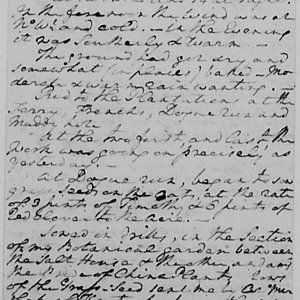 In the forenoon the Wind was at
No. Wt. and cold. — In the evening
it was Southerly & warm. —
The ground had got dry and
somewhat (in places) baked — Mo
derate & warm rain wanting. —
Rid to the Plantations at the
Ferry, French's, Dogue run and
Muddy hole.
At the two first, and last the
work was going on precisely as
yesterday.
At Dogue run, began to sow
grass Seeds on the Oats, at the rate
of 3 pints of Timothy & 6 pints of
red clover to the acre. —
Sowed in drills, in the Section
of my Botanical garden between
the Salt House &
the of China Plants
of the Grass-Seed sent me by Col.